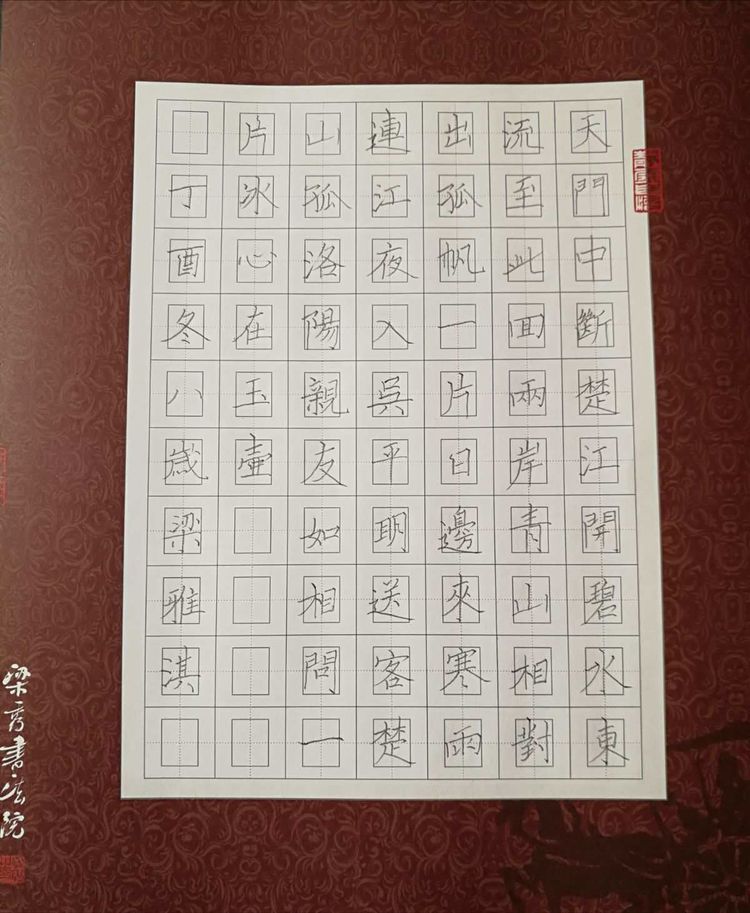 天門中斷楚江開碧水東
流至此回兩岸青山相對
出孤帆一片日邊來寒雨
連江夜入吳平明送客楚
山孤洛陽親友如相問一
片冰心在玉壺
丁酉冬八歲梁雅淇
梁秀書法院